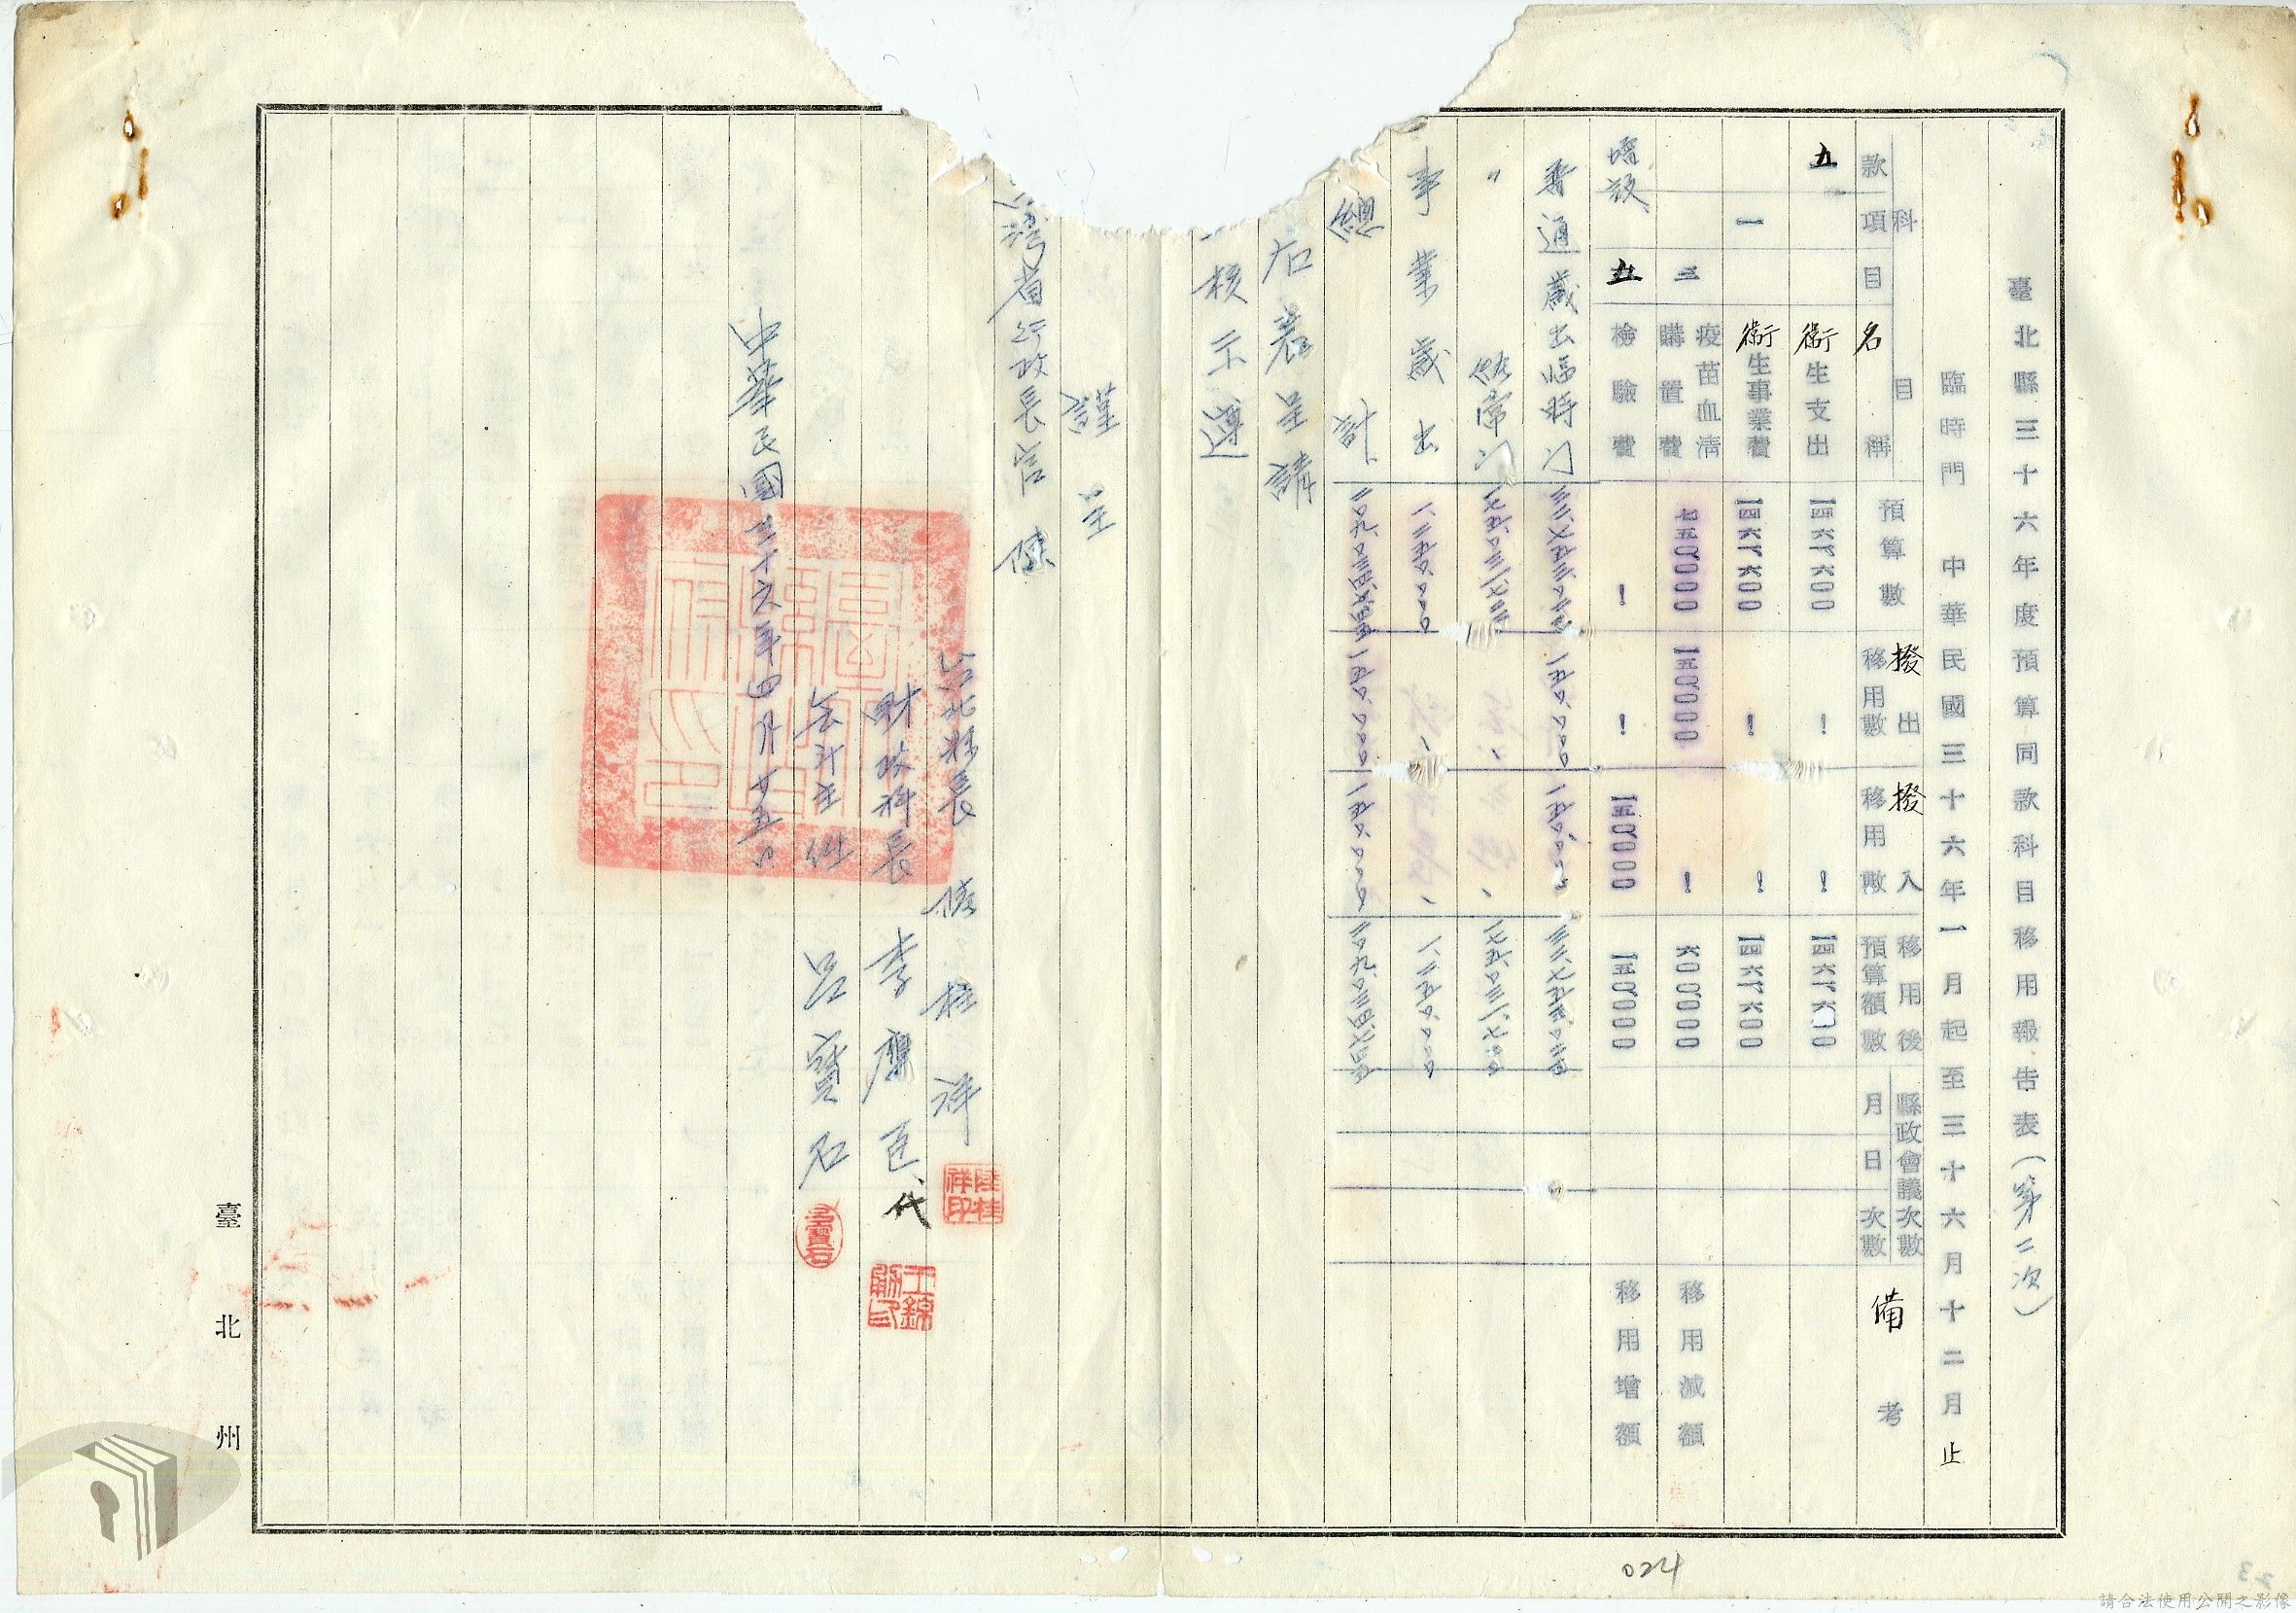 臺北縣三十六年度預算同款科目移用報告表(第二次)
臨時門 中華民國三十六年一月起至三十六月十二月止
科目
款項目名稱
預算數
撥出移用數
撥入移用數
移用後預算額數
縣政會議次數
月日次數
備考
五 衛生支出 一四六八六〇〇 ! ! 一四六八六〇〇
一 衛生事業費 一四六八六〇〇 ! ! 一四六八六〇〇
三 疫苗血清購置費 七五〇〇〇〇 一五〇〇〇〇 ! 六〇〇〇〇〇 移用減額
增設 五 檢驗費 ! ! 一五〇〇〇〇 一五〇〇〇〇 移用增額
普通歲出臨時門 一五〇、〇〇〇 一五〇、〇〇〇
〃 經常門
事業歲出 一、二五〇、〇〇〇 、 、 一、二五〇、〇〇〇
總計 一五〇、〇〇〇 一五〇、〇〇〇
右表呈請
核示遵
謹呈
灣省行政長官 陳
台北縣長 陸桂祥
陸桂祥印
財政科長 李膺臣 代
王錦
會計主任 呂寶石
呂寶石
中華民國三十六年四月廿五日
臺北州
024
23
請合法使用公開之影像